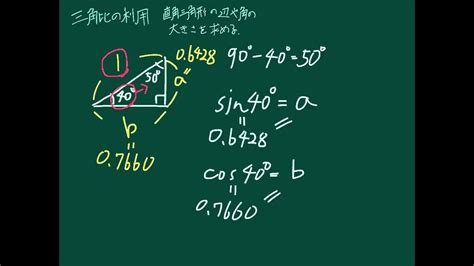 三角比の利用 直角三角形の辺や角の
大きさを求める.
1
50°
40°
0.6428
a
b
0.7660
90°-40°=50°
sin40°=a
0.6428
cos40°=b
0.7660